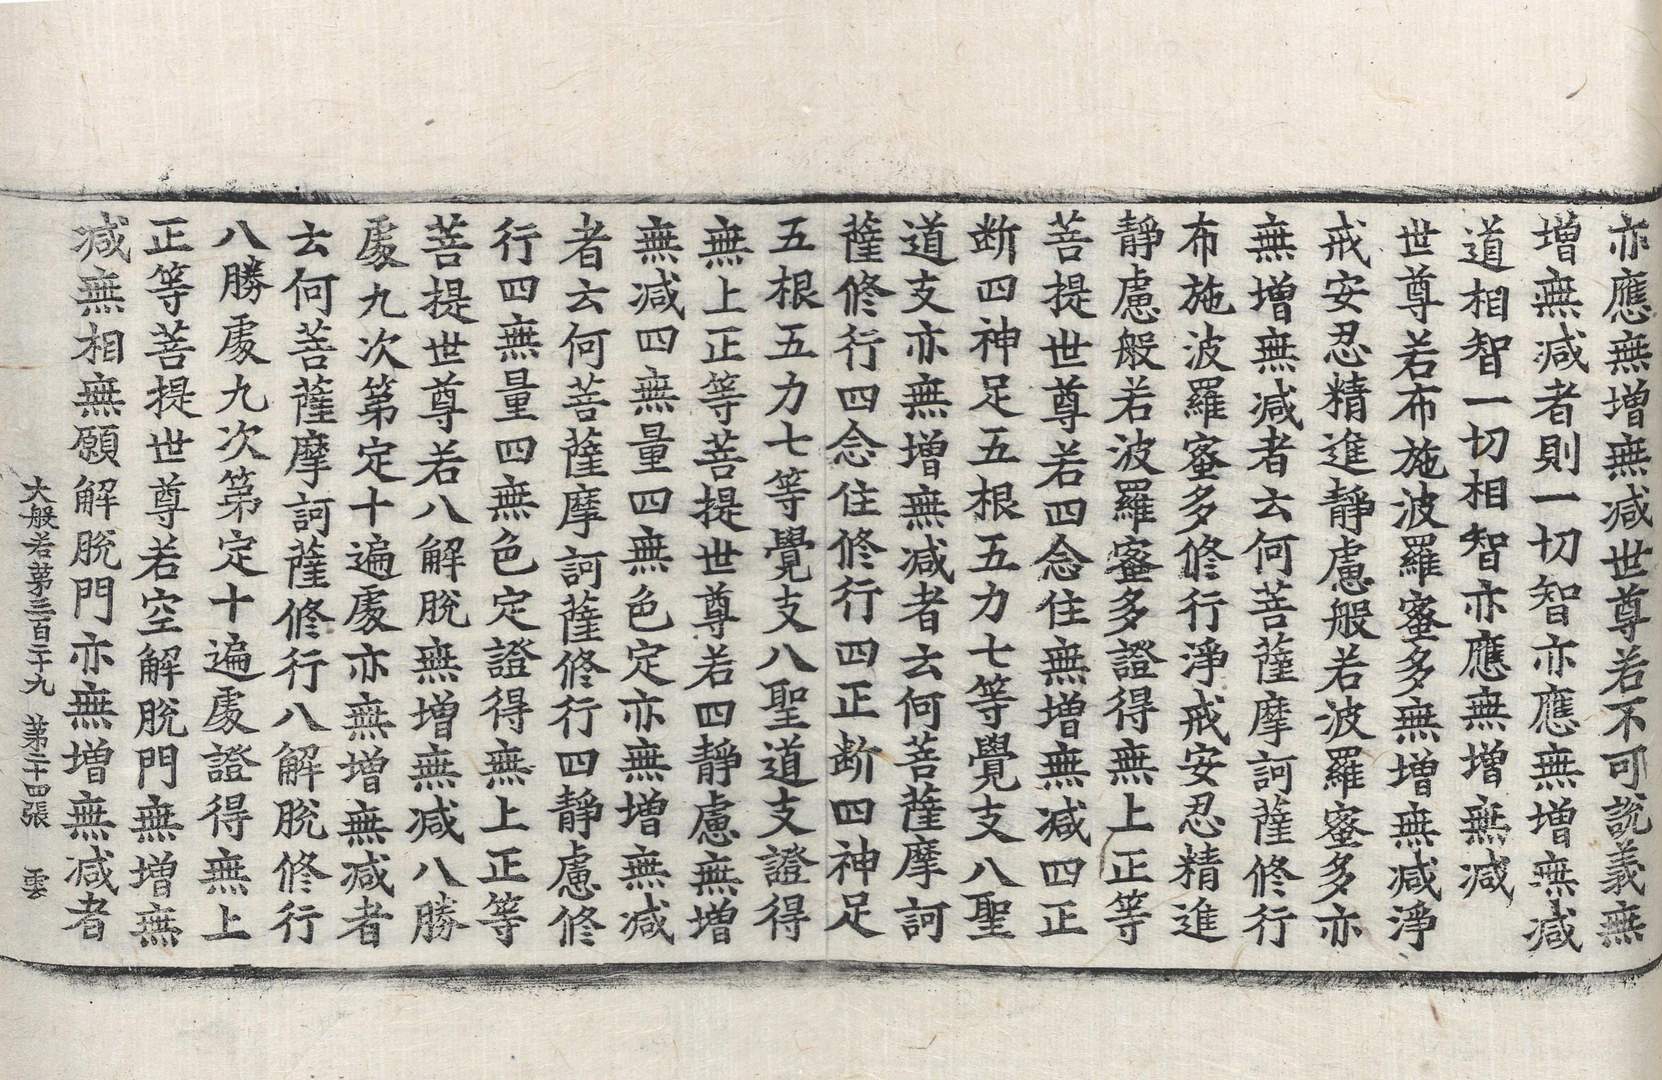 亦應無增無减世尊若不可說義無
增無减者則一切智亦應無增無减
道相智一切相智亦應無增無减
世尊若布施波羅蜜多無增無减淨
戒安忍精進靜慮般若波羅蜜多亦
無增無减者云何菩薩摩訶薩修行
布施波羅蜜多修行淨戒安忍精進
靜慮般若波羅蜜多證得無上正等
菩提世尊若四念住無增無减四正
断四神足五根五力七等覺支八聖
道支亦無增無减者云何菩薩摩訶
薩修行四念住修行四正断四神足
五根五力七等覺支八聖道支證得
無上正等菩提世尊若四靜慮無增
無减四無量四無色定亦無增無减
者云何菩薩摩訶薩修行四靜慮修
行四無量四無色定證得無上正等
菩提世尊若八解脫無增無减八勝
處九次第定十遍處亦無增無减者
云何菩薩摩訶薩修行八解脫修行
八勝處九次第定十遍處證得無上
正等菩提世尊若空解脫門無增無
减無相無願解脫門亦無增無减者
大般若第三百二十九 第二十四張 雲